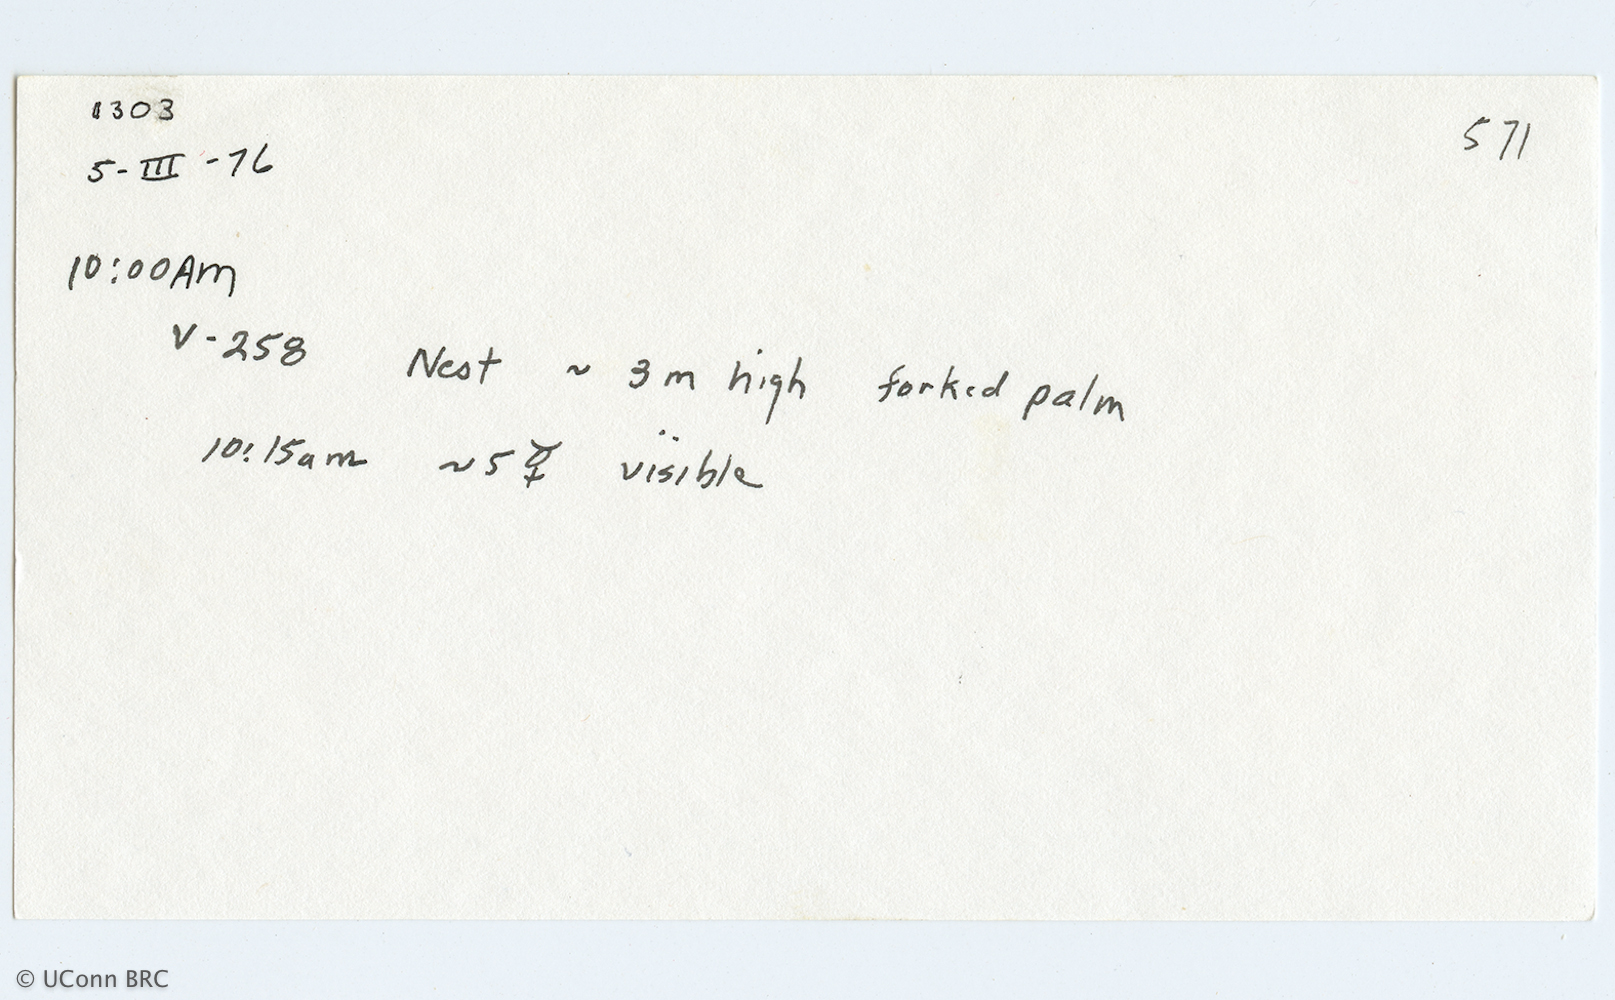 1303
571
5-III-76
10:00AM
V-258 Nest ~ 3m high forked palm
10:15am ~5 ☿ visible
© UConn BRC